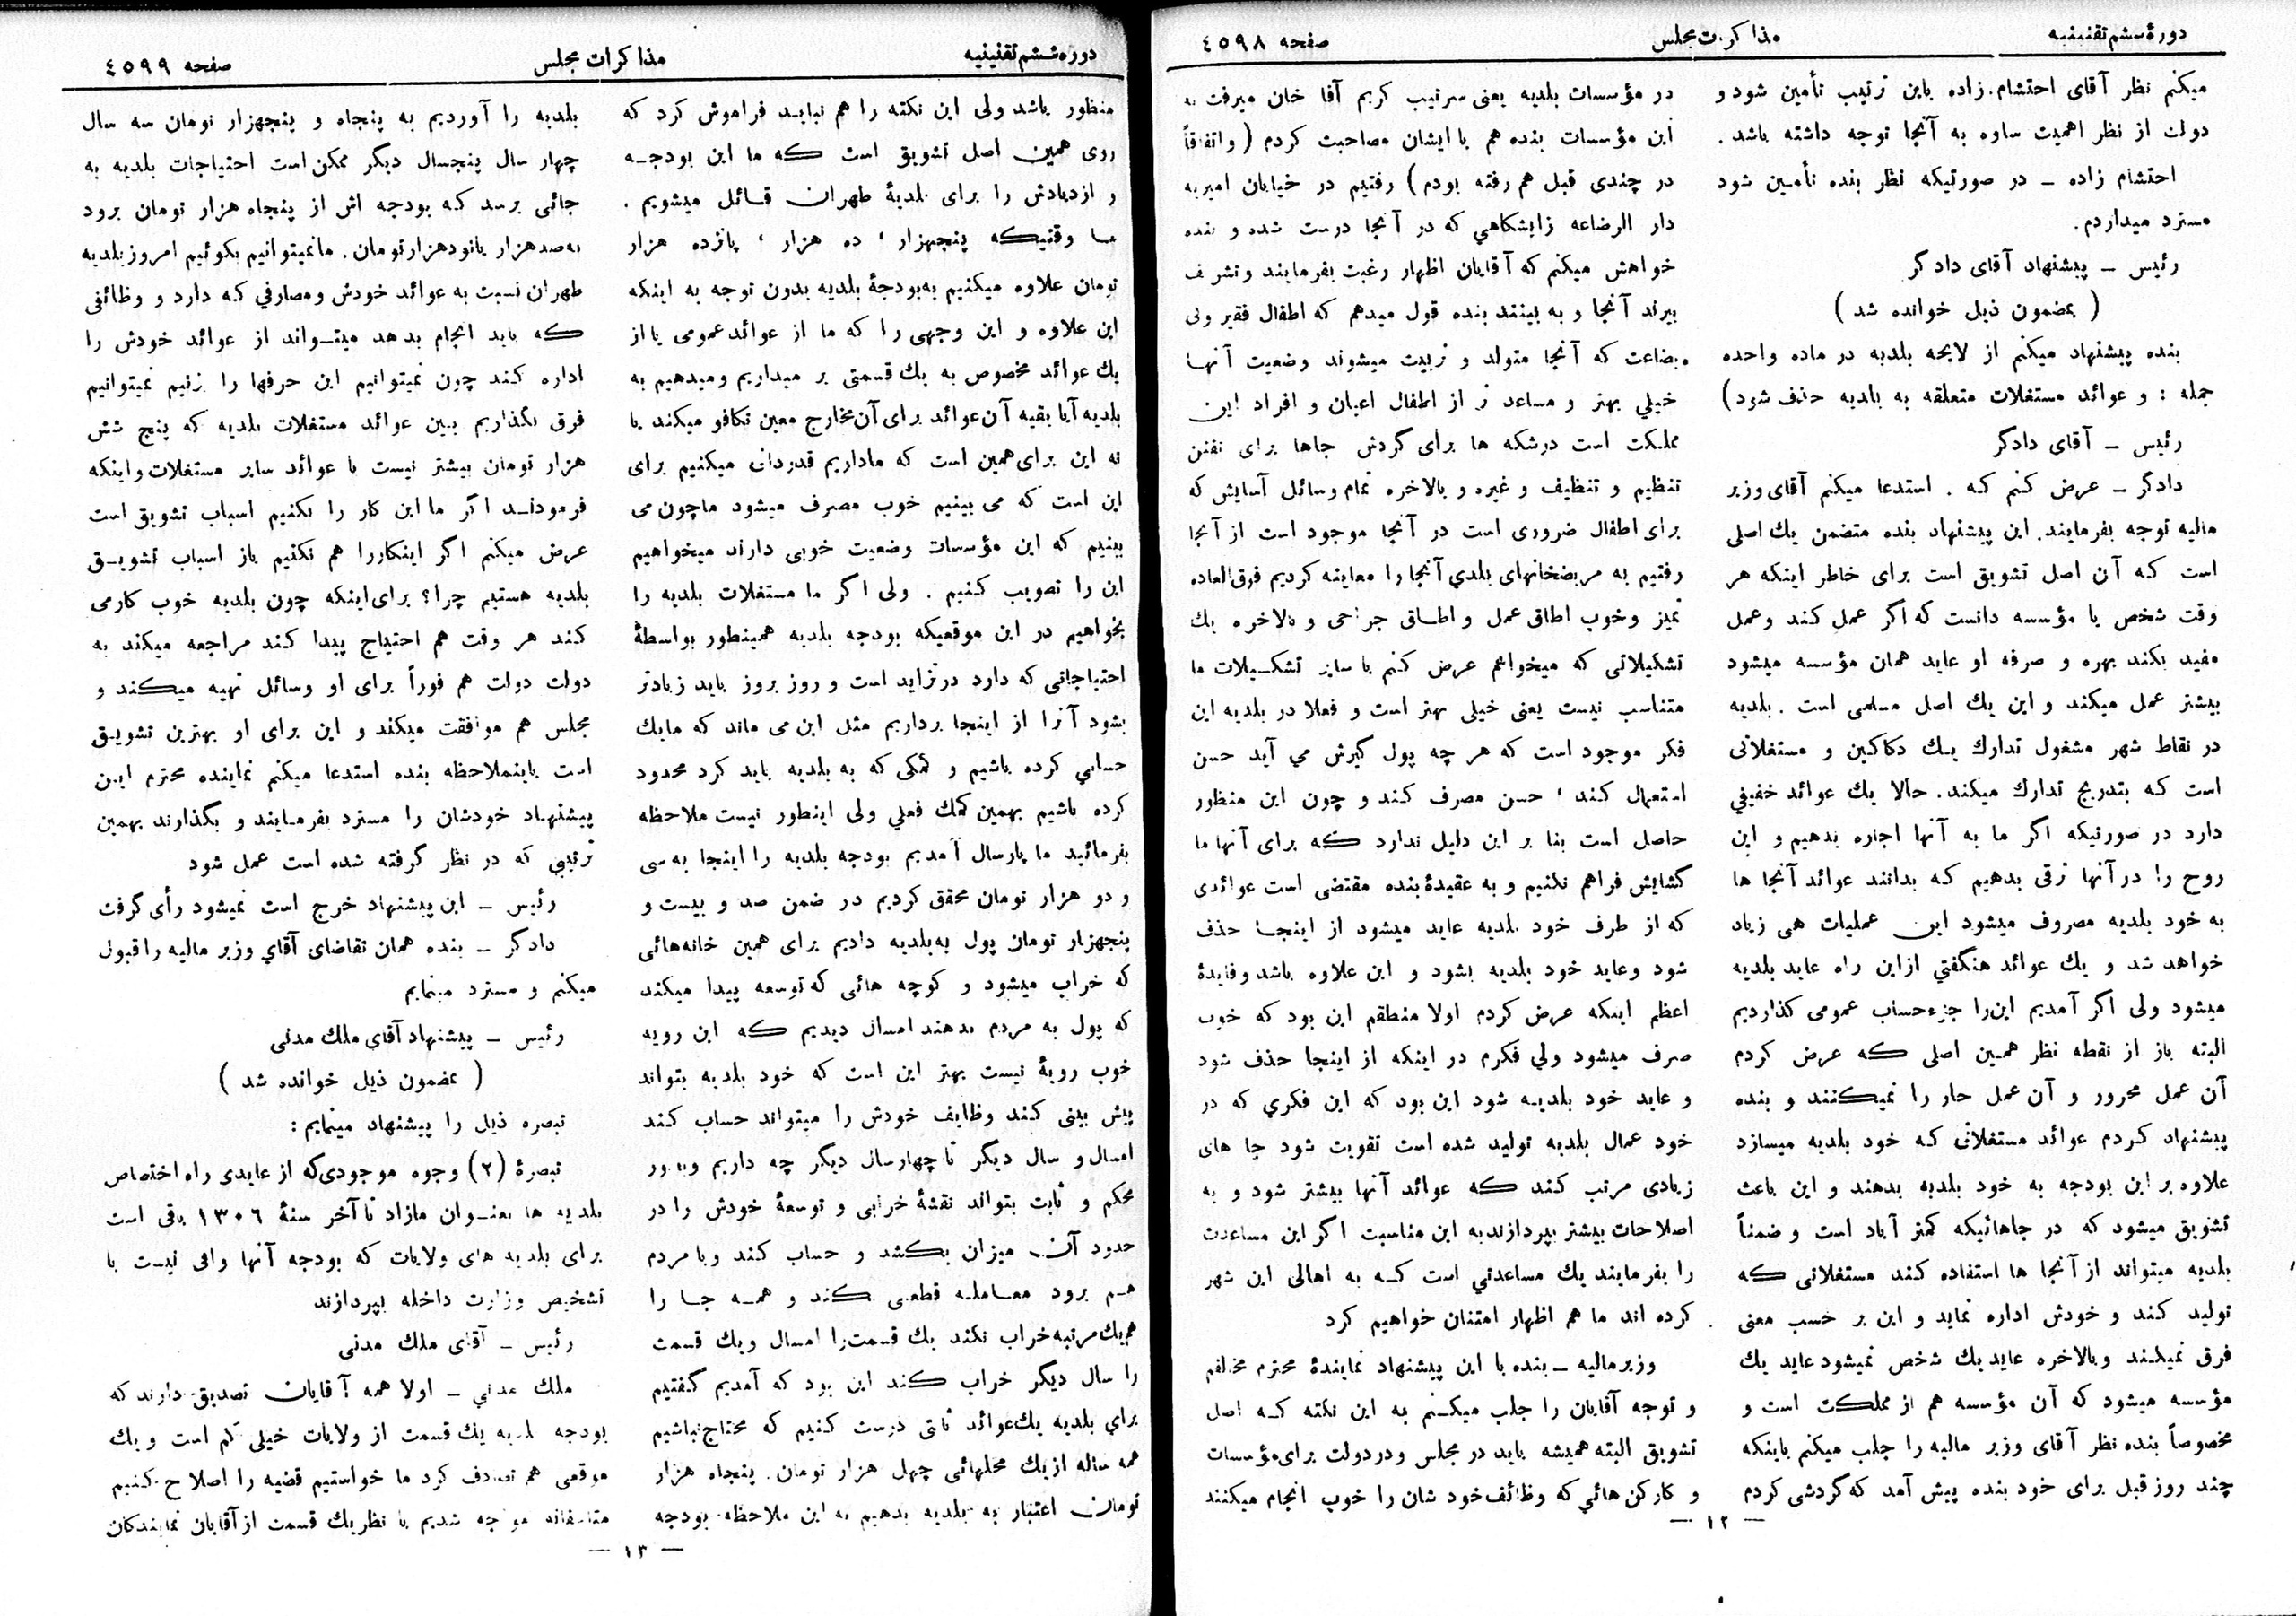 دورهٔ ششم تقنینیه
مذاکرات مجلس
صفحه ٤٥٩٨
میکنم نظر آقای احتشام‌زاده باین ترتیب تأمین شود و
دولت از نظر اهمیت ساوه به آنجا توجه داشته باشد .
احتشام زاده ـ در صورتیکه نظر بنده تأمین شود
مسترد میداردم.
رئیس ـ پیشنهاد آقای دادگر
( بمضمون ذیل خوانده شد )
بنده پیشنهاد میکنم از لایحه بلدیه در ماده واحده
جمله : و عوائد مستغلات متعلقه به بلدیه حذف شود)
رئیس ـ آقای دادگر
دادگر ـ عرض کنم که . استدعا میکنم آقای وزیر
مالیه توجه بفرمایند. این پیشنهاد بنده متضمن یك اصلی
است که آن اصل تشویق است برای خاطر اینکه هر
وقت شخص یا مؤسسه دانست که اگر عمل کند وعمل
مفید بکند بهره و صرفه او عاید همان مؤسسه میشود
بیشتر عمل میکند و این یك اصل مسلمی است . بلدیه
در نقاط شهر مشغول تدارك یك دکاکین و مستغلاتی
است که بتدریج تدارك میکند. حالا یك عوائد خفیفي
دارد در صورتیکه اگر ما به آنها اجازه بدهیم و این
روح را در آنها ترقی بدهیم که بدانند عوائد آنجا ها
به خود بلدیه مصروف میشود این عملیات هی زیاد
خواهد شد و یك عوائد هنگفتي از این راه عاید بلدیه
میشود ولی اگر آمدیم این‌را جزء حساب عمومی گذاردیم
البته باز از نقطه نظر همین اصلی که عرض کردم
آن عمل محرور و آن عمل حار را نمیکنند و بنده
پیشنهاد کردم عوائد مستغلاتی که خود بلدیه میسازد
علاوه بر این بودجه به خود بلدیه بدهند و این باعث
تشویق میشود که در جاهائیکه کمتر آباد است و ضمناً
بلدیه میتواند از آنجا ها استفاده کند مستغلاتی که
تولید کند و خودش اداره نماید و این بر حسب معنی
فرق نمیکند و بالاخره عاید یك شخص نمیشود عاید یك
مؤسسه میشود که آن مؤسسه هم از مملکت است و
مخصوصاً بنده نظر آقای وزیر مالیه را جلب میکنم باینکه
چند روز قبل برای خود بنده پیش آمد که گردشی کردم
در مؤسسات بلدیه یعنی سرتیپ کریم آقا خان میرفت به
این مؤسسات بنده هم با ایشان مصاحبت کردم ( و اتفاقاً
در چندی قبل هم رفته بودم ) رفتیم در خیابان امیریه
دار الرضاعه زایشگاهي که در آنجا درست شده و بنده
خواهش میکنم که آقایان اظهار رغبت بفرمایند و تشریف
ببرند آنجا و به بینند بنده قول میدهم که اطفال فقیر ولی
بضاعت که آنجا متولد و تربیت میشوند وضعیت آنهـا
خیلي بهتر و مساعد تر از اطفال اعیان و افراد این
مملکت است درشکه ها برای گردش جاها برای تفنن
تنظیم و تنظیف و غیره و بالاخره تمام وسائل آسایش که
برای اطفال ضروری است در آنجا موجود است از آنجا
رفتیم به مریضخانهای بلدي آنجا را معاینه کردیم فوق‌العاده
تمیز وخوب اطاق عمل و اطـاق جراحی و بالاخره یك
تشکیلاتی که میخواهم عرض کنم با سایر تشکـیلات ما
متناسب نیست یعنی خیلی بهتر است و فعلا در بلدیه این
فکر موجود است که هر چه پول گیرش می آید حسن
استعمال کند ، حسن مصرف کند و چون این منظور
حاصل است بنا بر این دلیل ندارد که برای آنها ما
گشایش فراهم نکنیم و به عقیدهٔ بنده مقتضی است عوائدی
که از طرف خود بلدیه عاید میشود از اینجـا حذف
شود وعاید خود بلدیه بشود و این علاوه باشد و فایدهٔ
اعظم اینکه عرض کردم اولا منطقم این بود که خوب
صرف میشود ولي فکرم در اینکه از اینجا حذف شود
و عاید خود بلدیـه شود این بود که این فکري که در
خود عمال بلدیه تولید شده است تقویت شود جا های
زیادی مرتب کنند که عوائد آنها بیشتر شود و به
اصلاحات بیشتر بپردازند به این مناسبت اگر این مساعدت
را بفرمایند یك مساعدتي است کـه به اهالی این شهر
کرده اند ما هم اظهار امتنان خواهیم کرد
وزیر مالیه ـ بنده با این پیشنهاد نمایندهٔ محترم مخالفم
و توجه آقایان را جلب میکـنم به این نکته کـه اصل
تشویق البته همیشه باید در مجلس و در دولت برای مؤسسات
و کارکن هائي که وظائف خود شان را خوب انجام میکنند
— ١٢ —
دوره ششم تقنینیه
مذاکرات مجلس
صفحه ٤٥٩٩
منظور باشد ولی این نکته را هم نبایـد فراموش کرد که
روی همین اصل تشویق است که ما این بودجـه
و ازدیادش را برای بلدیهٔ طهران قـائل میشویم .
مـا وقتیکه پنجهزار ، ده هزار ، پانزده هزار
تومان علاوه میکنیم به‌بودجهٔ بلدیه بدون توجه به اینکه
این علاوه و این وجهی را که ما از عوائد عمومی یا از
یك عوائد مخصوص به یك قسمتی بر میداریم و میدهیم به
بلدیه آیا بقیه آن عوائد برای آن مخارج معین تکافو میکند یا
نه این برای همین است که ما داریم قدردانی میکنیم برای
این است که می بینیم خوب مصرف میشود ما چون می
بینیم که این مؤسسات وضعیت خوبی دارند میخواهیم
این را تصویب کنیم . ولی اگر ما مستغلات بلدیه را
بخواهیم در این موقعیکه بودجه بلدیه همینطور بواسطهٔ
احتیاجاتی که دارد در تزاید است و روز بروز باید زیادتر
بشود آنرا از اینجا برداریم مثل این می ماند که ما یك
حسابي کرده باشیم و کمکی که به بلدیه باید کرد محدود
کرده باشیم بهمین کمك فعلي ولی اینطور نیست ملاحظه
بفرمائید ما پارسال آمدیم بودجه بلدیه را اینجا به سی
و دو هزار تومان محقق کردیم در ضمن صد و بیست و
پنجهزار تومان پول به‌بلدیه دادیم برای همین خانه‌هائی
که خراب میشود و کوچه هائی که توسعه پیدا میکند
که پول به مردم بدهند امسال دیدیم که این رویه
خوب رویهٔ نیست بهتر این است که خود بلدیه بتواند
پیش بینی کند وظایف خودش را میتواند حساب کند
امسال و سال دیگر تا چهار سال دیگر چه داریم وبطور
محکم و ثابت بتواند نقشهٔ خرابی و توسعهٔ خودش را در
حدود آن میزان بکشد و حساب کند و با مردم
هـم برود معـاملـه قطعی بکند و همـه جـا را
هم یك مرتبه خراب نکند یك قسمت را امسال و یك قسمت
را سال دیگر خراب کند این بود که آمدیم گفتیم
براي بلدیه یك عوائد ثابتی درست کنیم که محتاج نباشیم
همه ساله از یك محلهائی چهل هزار تومان، پنجاه هزار
تومان اعتبار به بلدیه بدهیم به این ملاحظه بودجه
بلدیه را آوردیم به پنجاه و پنجهزار تومان سه سال
چهار سال پنجسال دیگر ممکن است احتیاجات بلدیه به
جائی برسد که بودجه اش از پنجاه هزار تومان برود
به صد هزار یا نود هزار تومان . ما نمیتوانیم بگوئیم امروز بلدیه
طهران نسبت به عوائد خودش و مصارفي که دارد و وظائفی
که باید انجام بدهد میتـواند از عوائد خودش را
اداره کند چون نمیتوانیم این حرفها را بزنیم نمیتوانیم
فرق بگذاریم بین عوائد مستغلات بلدیه که پنج شش
هزار تومان بیشتر نیست با عوائد سایر مستغلات و اینکه
فرمودنـد اگر ما این کار را بکنیم اسباب تشویق است
عرض میکنم اگر اینکار را هم نکنیم باز اسباب تشویـق
بلدیه هستیم چرا؟ برای اینکه چون بلدیه خوب کار می
کند هر وقت هم احتیاج پیدا کند مراجعه میکند به
دولت دولت هم فوراً برای او وسائل تهیه میکند و
مجلس هم موافقت میکند و این برای او بهترین تشویـق
است باینملاحظه بنده استدعا میکنم نماینده محترم این
پیشنهـاد خودشان را مسترد بفرمـایند و بگذارند بهمین
ترتیبي که در نظر گرفته شده است عمل شود
رئیس ـ این پیشنهاد خرج است نمیشود رأی گرفت
دادگر ـ بنده همان تقاضای آقاي وزیر مالیه را قبول
میکنم و مسترد مینمایم
رئیس ـ پیشنهاد آقاي ملك مدنی
( بمضمون ذیل خوانده شد )
تبصره ذیل را پیشنهاد مینمایم :
تبصرهٔ (۲) وجوه موجودی که از عایدی راه اختصاص
بلدیه ها بعنـوان مازاد تا آخر سنهٔ ١٣٠٦ باقی است
برای بلدیه های ولایات که بودجه آنها وافی نیست با
تشخیص وزارت داخله بپردازند
رئیس ـ آقای ملك مدنی
ملك مدني ـ اولا همه آقایان تصدیق دارند که
بودجه بلدیه یك قسمت از ولایات خیلی کم است و یك
موقعی هم تصادف کرد ما خواستیم قضیه را اصلاح کنیم
متأسفانه مواجه شدیم با نظر یك قسمت از آقایان نمایندگان
— ١٣ —